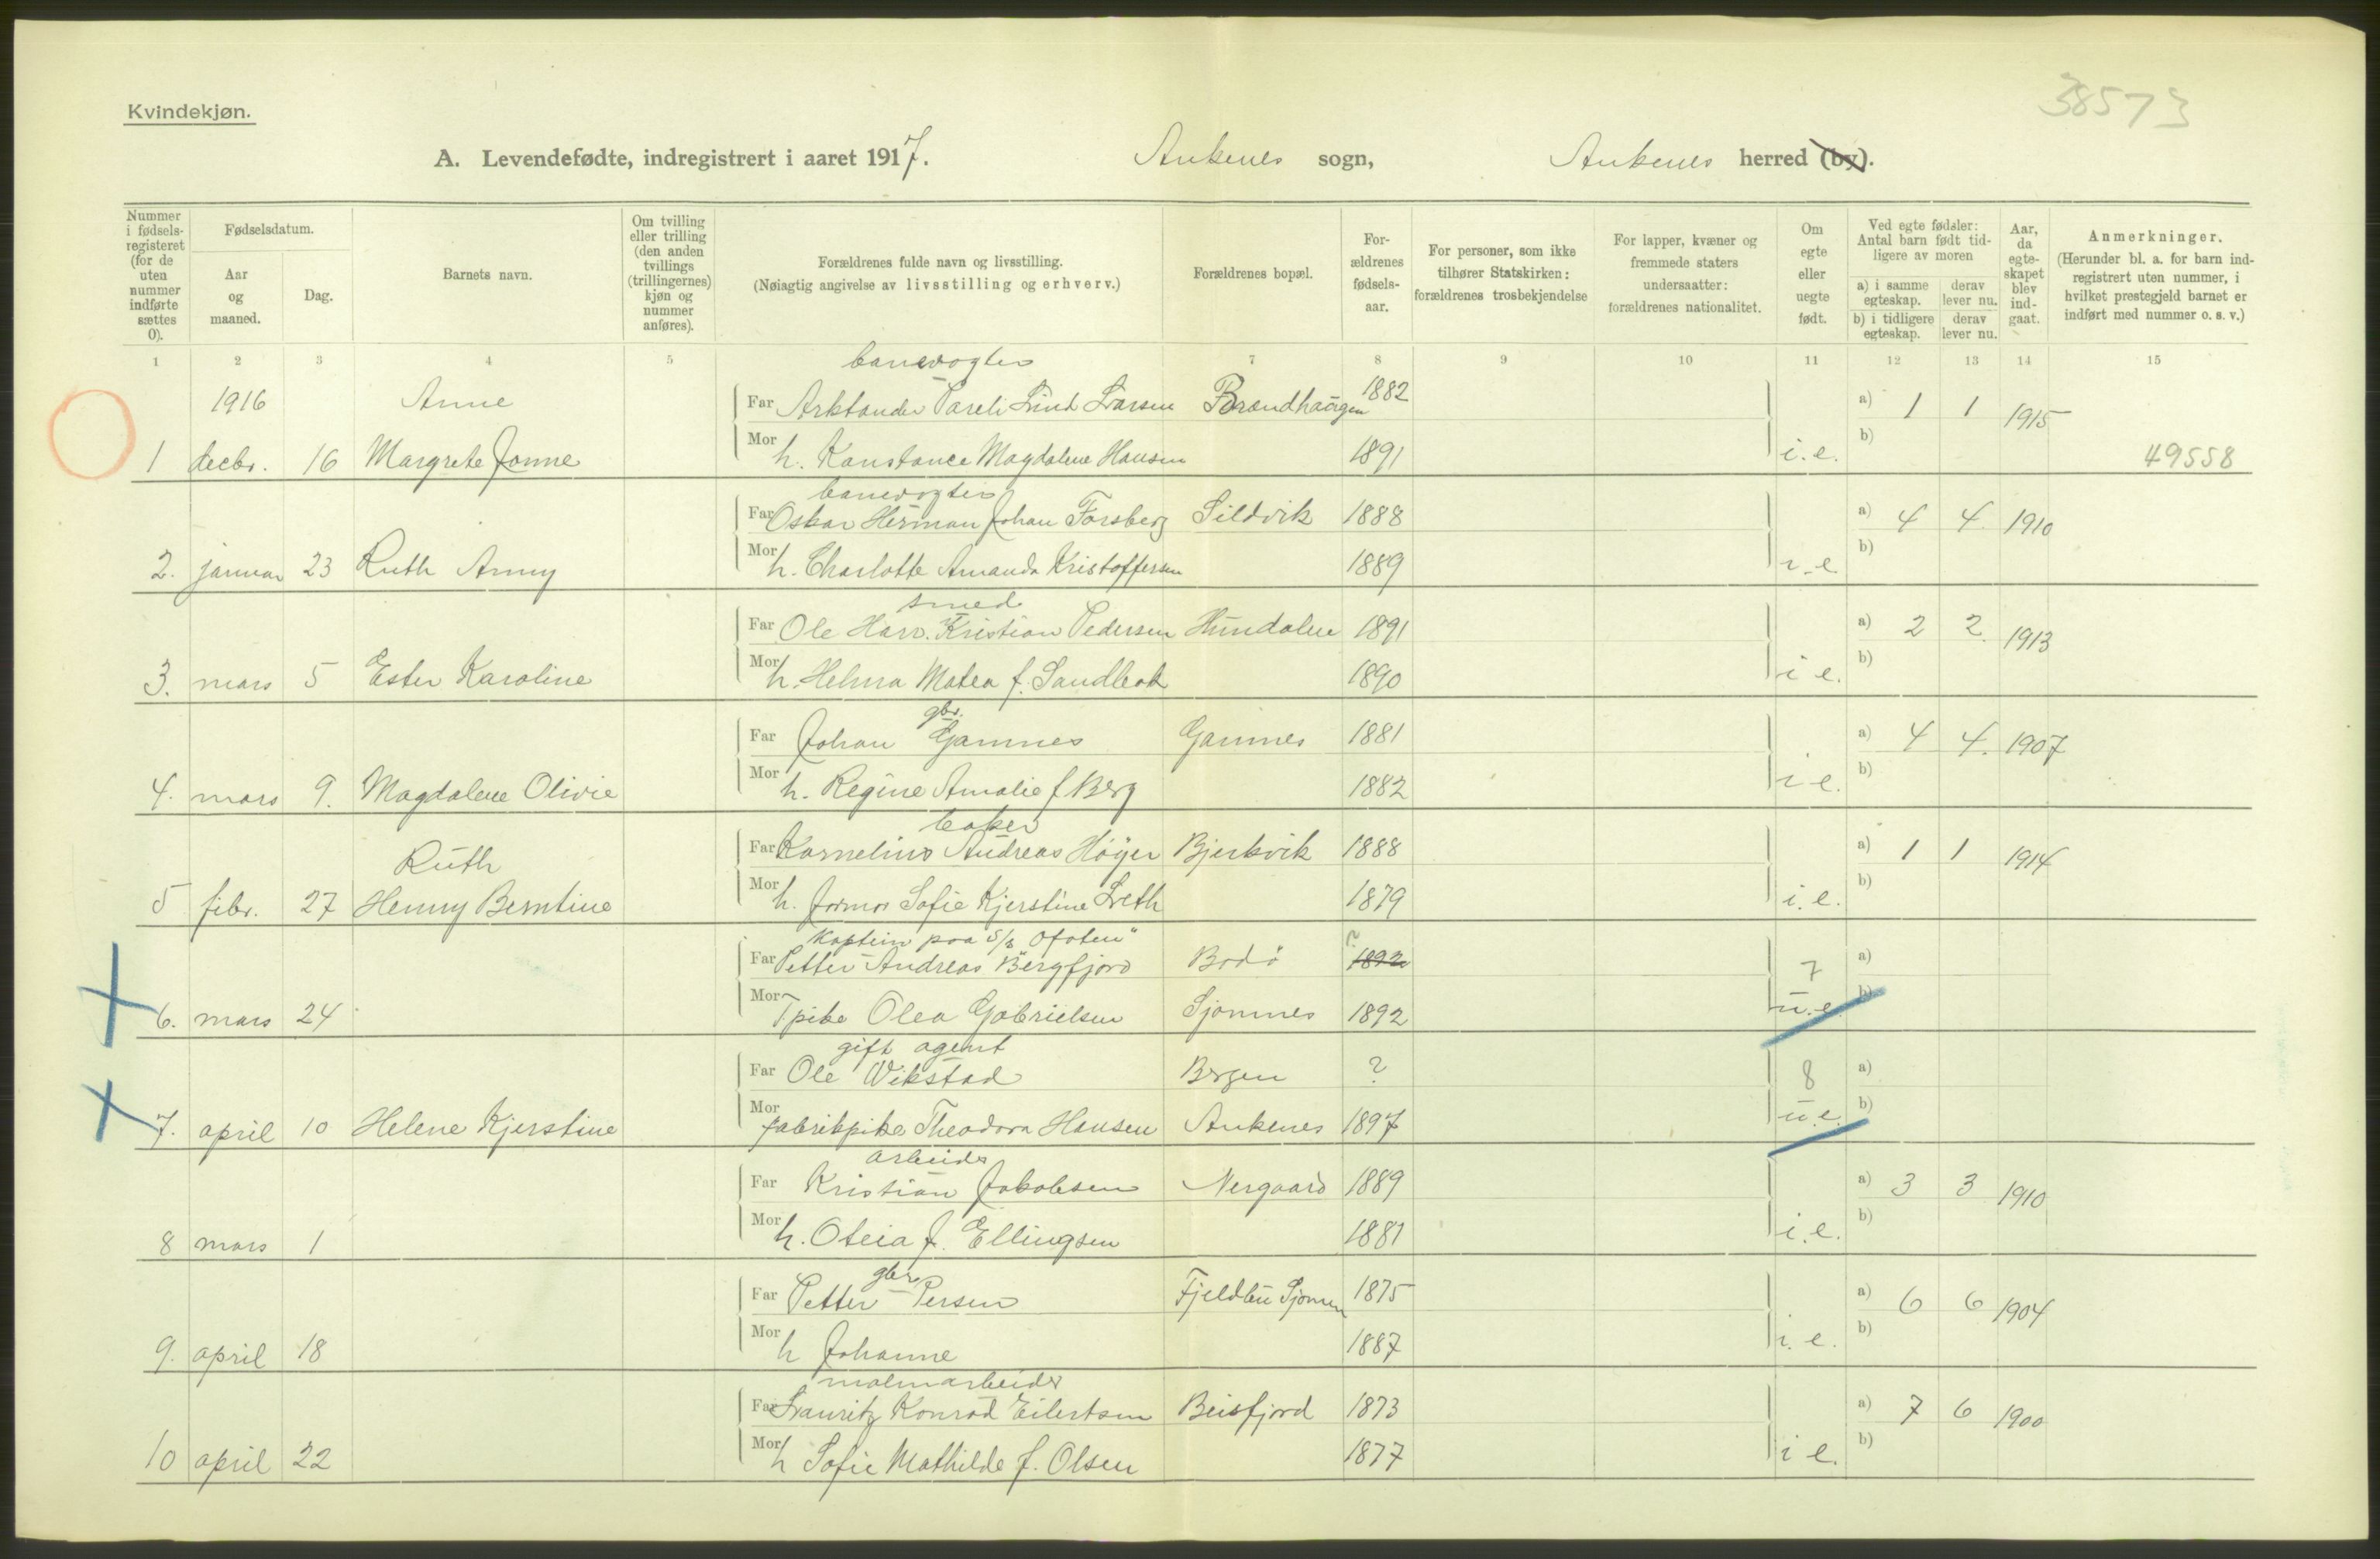 38573
Kvindekjøn.
A. Levendefødte, indregistrert i aaret 1917. Ankenes sogn, Ankenes herred (by).
Nummer i fødselsregisteret (for de uten nummer indførte sættes 0).
Fødselsdatum.
Aar og maaned.
Dag.
Barnets navn.
Om tvilling eller trilling (den anden tvillings (trillingernes) kjøn og nummer anføres).
Forældrenes fulde navn og livsstilling.
(Nøiagtig angivelse av livsstilling og erhverv.)
Forældrenes bopæl.
Forældrenes fødselsaar.
For personer, som ikke tilhører Statskirken: forældrenes trosbekjendelse
For lapper, kvæner og fremmede staters undersaatter: forældrenes nationalitet.
Om egte eller uegte født.
Ved egte fødsler: Antal barn født tidligere av moren
a) i samme egteskap. derav lever nu.
b) i tidligere egteskap. derav lever nu.
Aar, da egteskapet blev indgaat.
Anmerkninger.
(Herunder bl. a. for barn indregistrert uten nummer, i hvilket prestegjeld barnet er indført med nummer o. s. v.)
1 2 3 4 5 7 8 9 10 11 12 13 14 15
banevogter
1916 Anne Far Arktander Pareli Lind Larsen Brandhaugen 1882 a) 1 1 1915
1 decbr. 16 Margrete Jonne Mor h. Konstance Magdalene Hansen 1891 i.e. b) 49558
banevogter
Far Oskar Herman Johan Forsberg Sildvik 1888 a) 4 4 1910
2. januar 23 Ruth Anny Mor h. Charlotte Amanda Kristoffersen 1889 i.e b)
smed
Far Ole Harv. Kristian Pedersen Hundalen 1891 a) 2 2. 1913
3. mars 5 Ester Karoline Mor h. Helma Matea f. Sandbak 1890 i e. b)
gbr.
Far Johan Gamnes Gamnes 1881 a) 4 4. 1907
4. mars 9. Magdalene Olivie Mor h. Regine Amalie f Berg 1882 i e. b)
baker
Ruth Far Kornelius Andreas Høyer Bjerkvik 1888 a) 1 1 1914
5 febr. 27 Henny Berntine Mor h. Jormor Sofie Kjerstine Leth 1879 i.e. b)
Kaptein paa S/S "Ofoten"
Far Petter Andreas Bergfjord Bodø 1892 ? 7 a)
6. mars 24 Mor Tpike Olea Gabrielsen Sjomnes 1892 u.e. b)
gift agent
Far Ole Wikstad Bergen ? 8 a)
7. april 10 Helene Kjerstine Mor fabrikpike Theodora Hansen Ankenes 1897 u.e. b)
arbeider
Far Kristian Jakobsen Nergaard 1889 a) 3 3 1910
8 mars 1 Mor h. Oteia f. Ellingsen 1881 i.e. b)
gbr
Far Petter Persen Fjeldbu Sjomen 1875 a) 6 6 1904
9. april 18 Mor h Johanne 1887 i.e. b)
malmarbeider
Far Lauritz Konrad Eilertsen Beisfjord 1873 a) 7 6 1900
10 april 22 Mor h Sofie Mathilde f. Olsen 1877 i e. b)